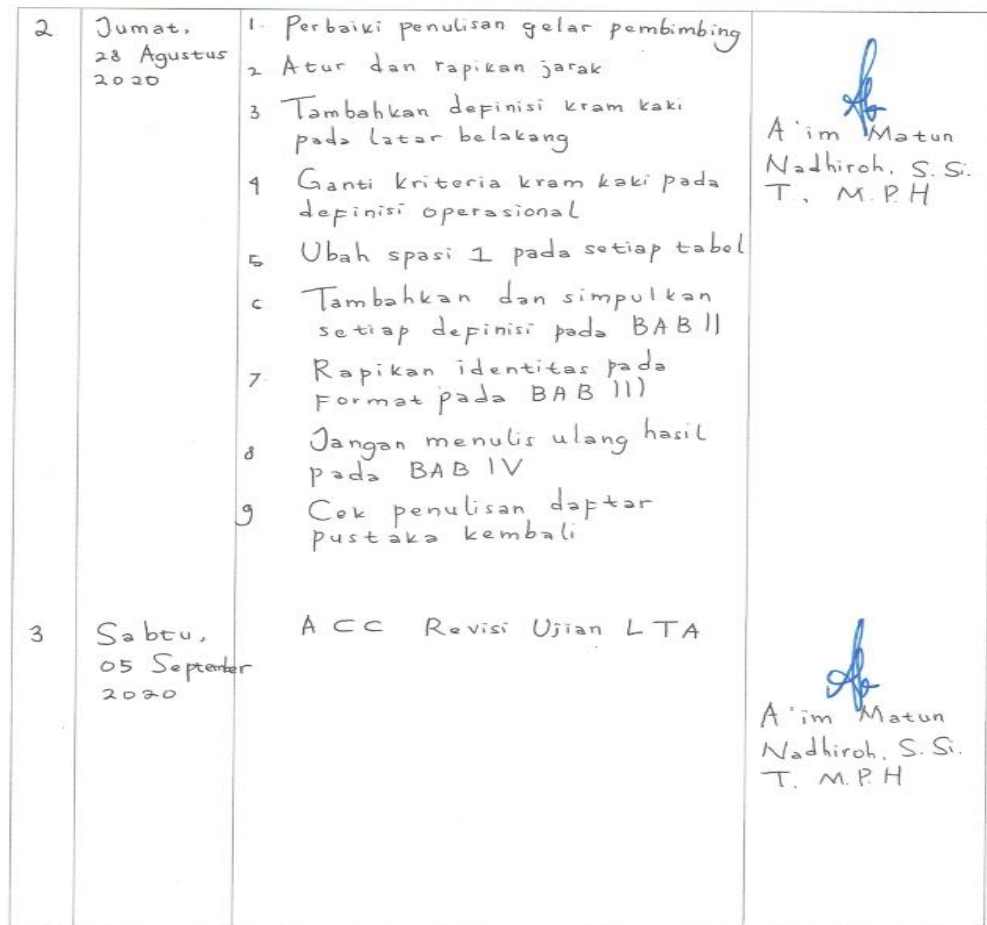 2
Jumat,
28 Agustus
2020
1. Perbaiki penulisan gelar pembimbing
2 Atur dan rapikan jarak
3 Tambahkan definisi kram kaki
pada latar belakang
4 Ganti kriteria kram kaki pada
definisi operasional
5 Ubah spasi 1 pada setiap tabel
6 Tambahkan dan simpulkan
setiap definisi pada BAB II
7. Rapikan identitas pada
Format pada BAB III
8 Jangan menulis ulang hasil
pada BAB IV
9 Cek penulisan daftar
pustaka kembali
A'im Matun
Nadhiroh, S. Si.
T. M.P.H
3
Sabtu,
05 September
2020
ACC Revisi Ujian LTA
A'im Matun
Nadhiroh, S. Si.
T. M.P.H